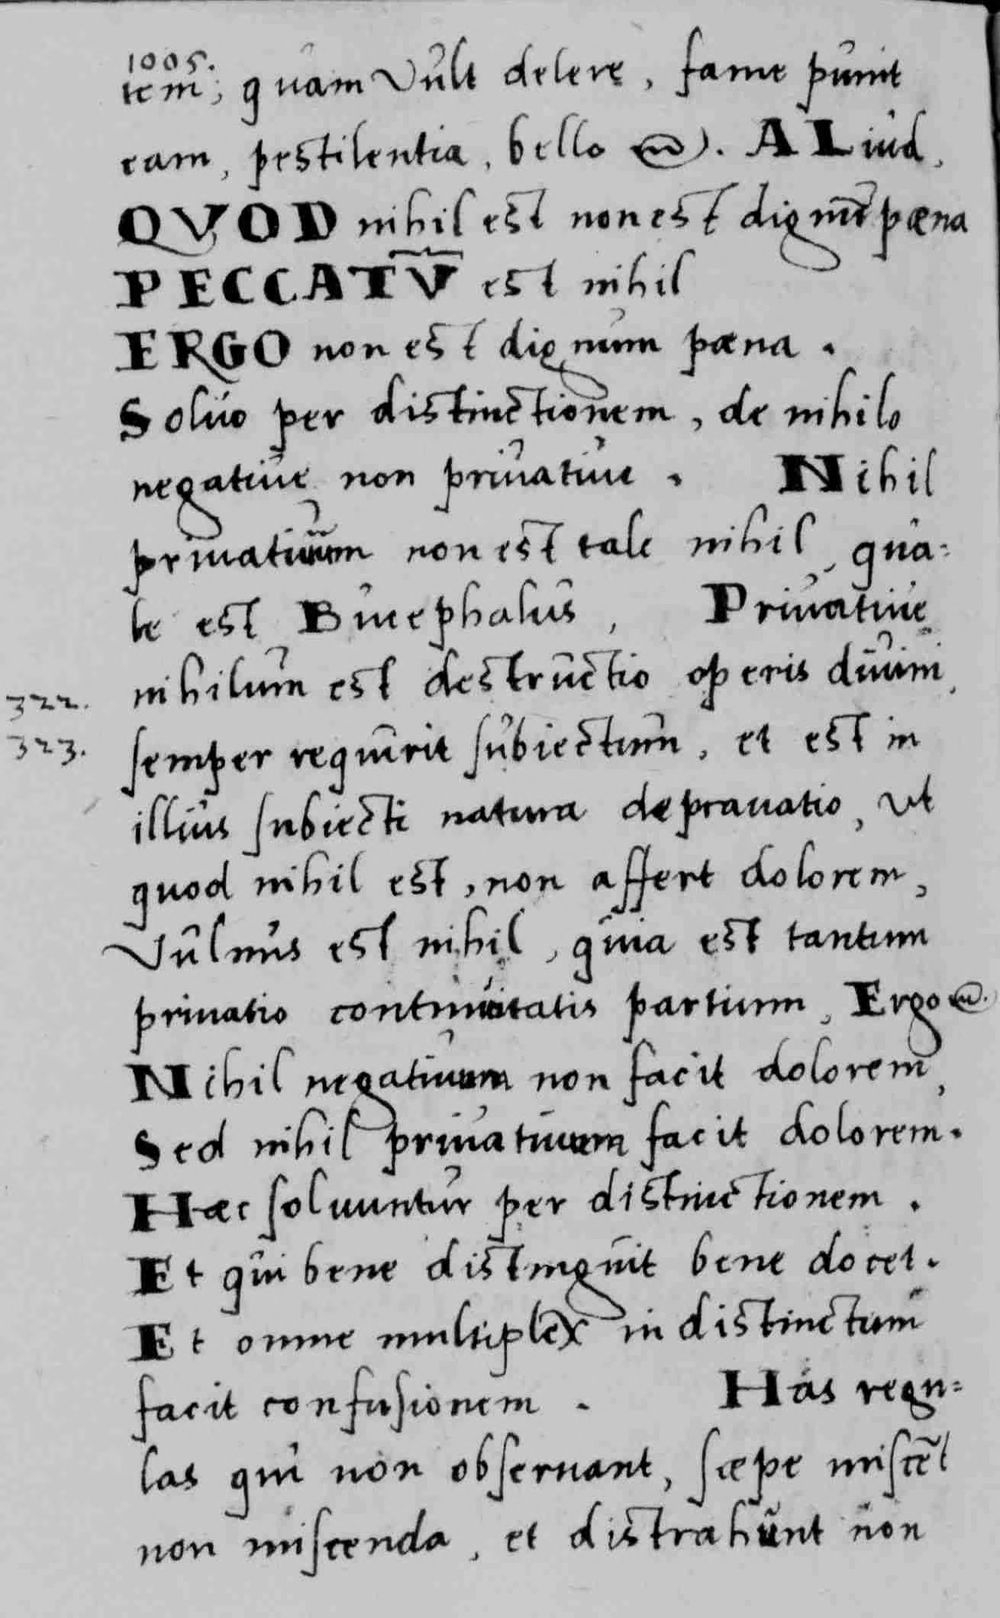 1005.
tem; quam Vult delere, fame punit
eam, pestilentia, bello. ALiud,
QVOD nihil est non est dignū pæna
PECCATV̄ est nihil
ERGO non est dignum pæna.
Soluo per distinctionem, de nihilo
negatiue non priuatiue. Nihil
priuatiuum non est tale nihil, qua=
le est Bucephalus, Priuatiue
nihilum est destructio operis diuini,
322.
323.
semper requirit subiectum, et est in
illius subiecti natura deprauatio, Vt
quod nihil est, non affert dolorem,
Vulnus est nihil, quia est tantum
priuatio continuitatis partium, Ergo
Nihil negatiuum non facit dolorem,
Sed nihil priuatiuum facit dolorem.
Hæc soluuntur per distinctionem.
Et qui bene distinguit bene docet.
Et omne multiplex indistinctum
facit confusionem. Has regu=
las qui non obseruant, sæpe miscēt
non miscenda, et distrahunt non